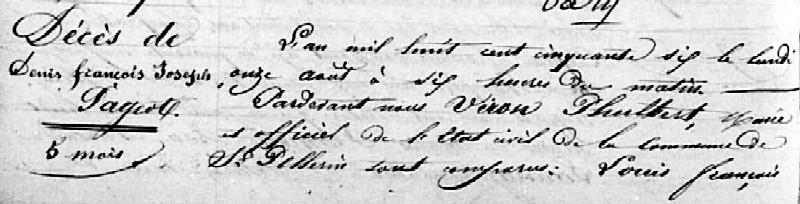 Décès de
Denis françois Joseph,
Pageot.
8 mois
L'an mil huit cent cinquante six le lundi
onze août à six heures du matin
Pardevant nous Viron Philbert, Maire
et officier de l'état civil de la Commune de
St Pellerin sont comparus: Louis françois